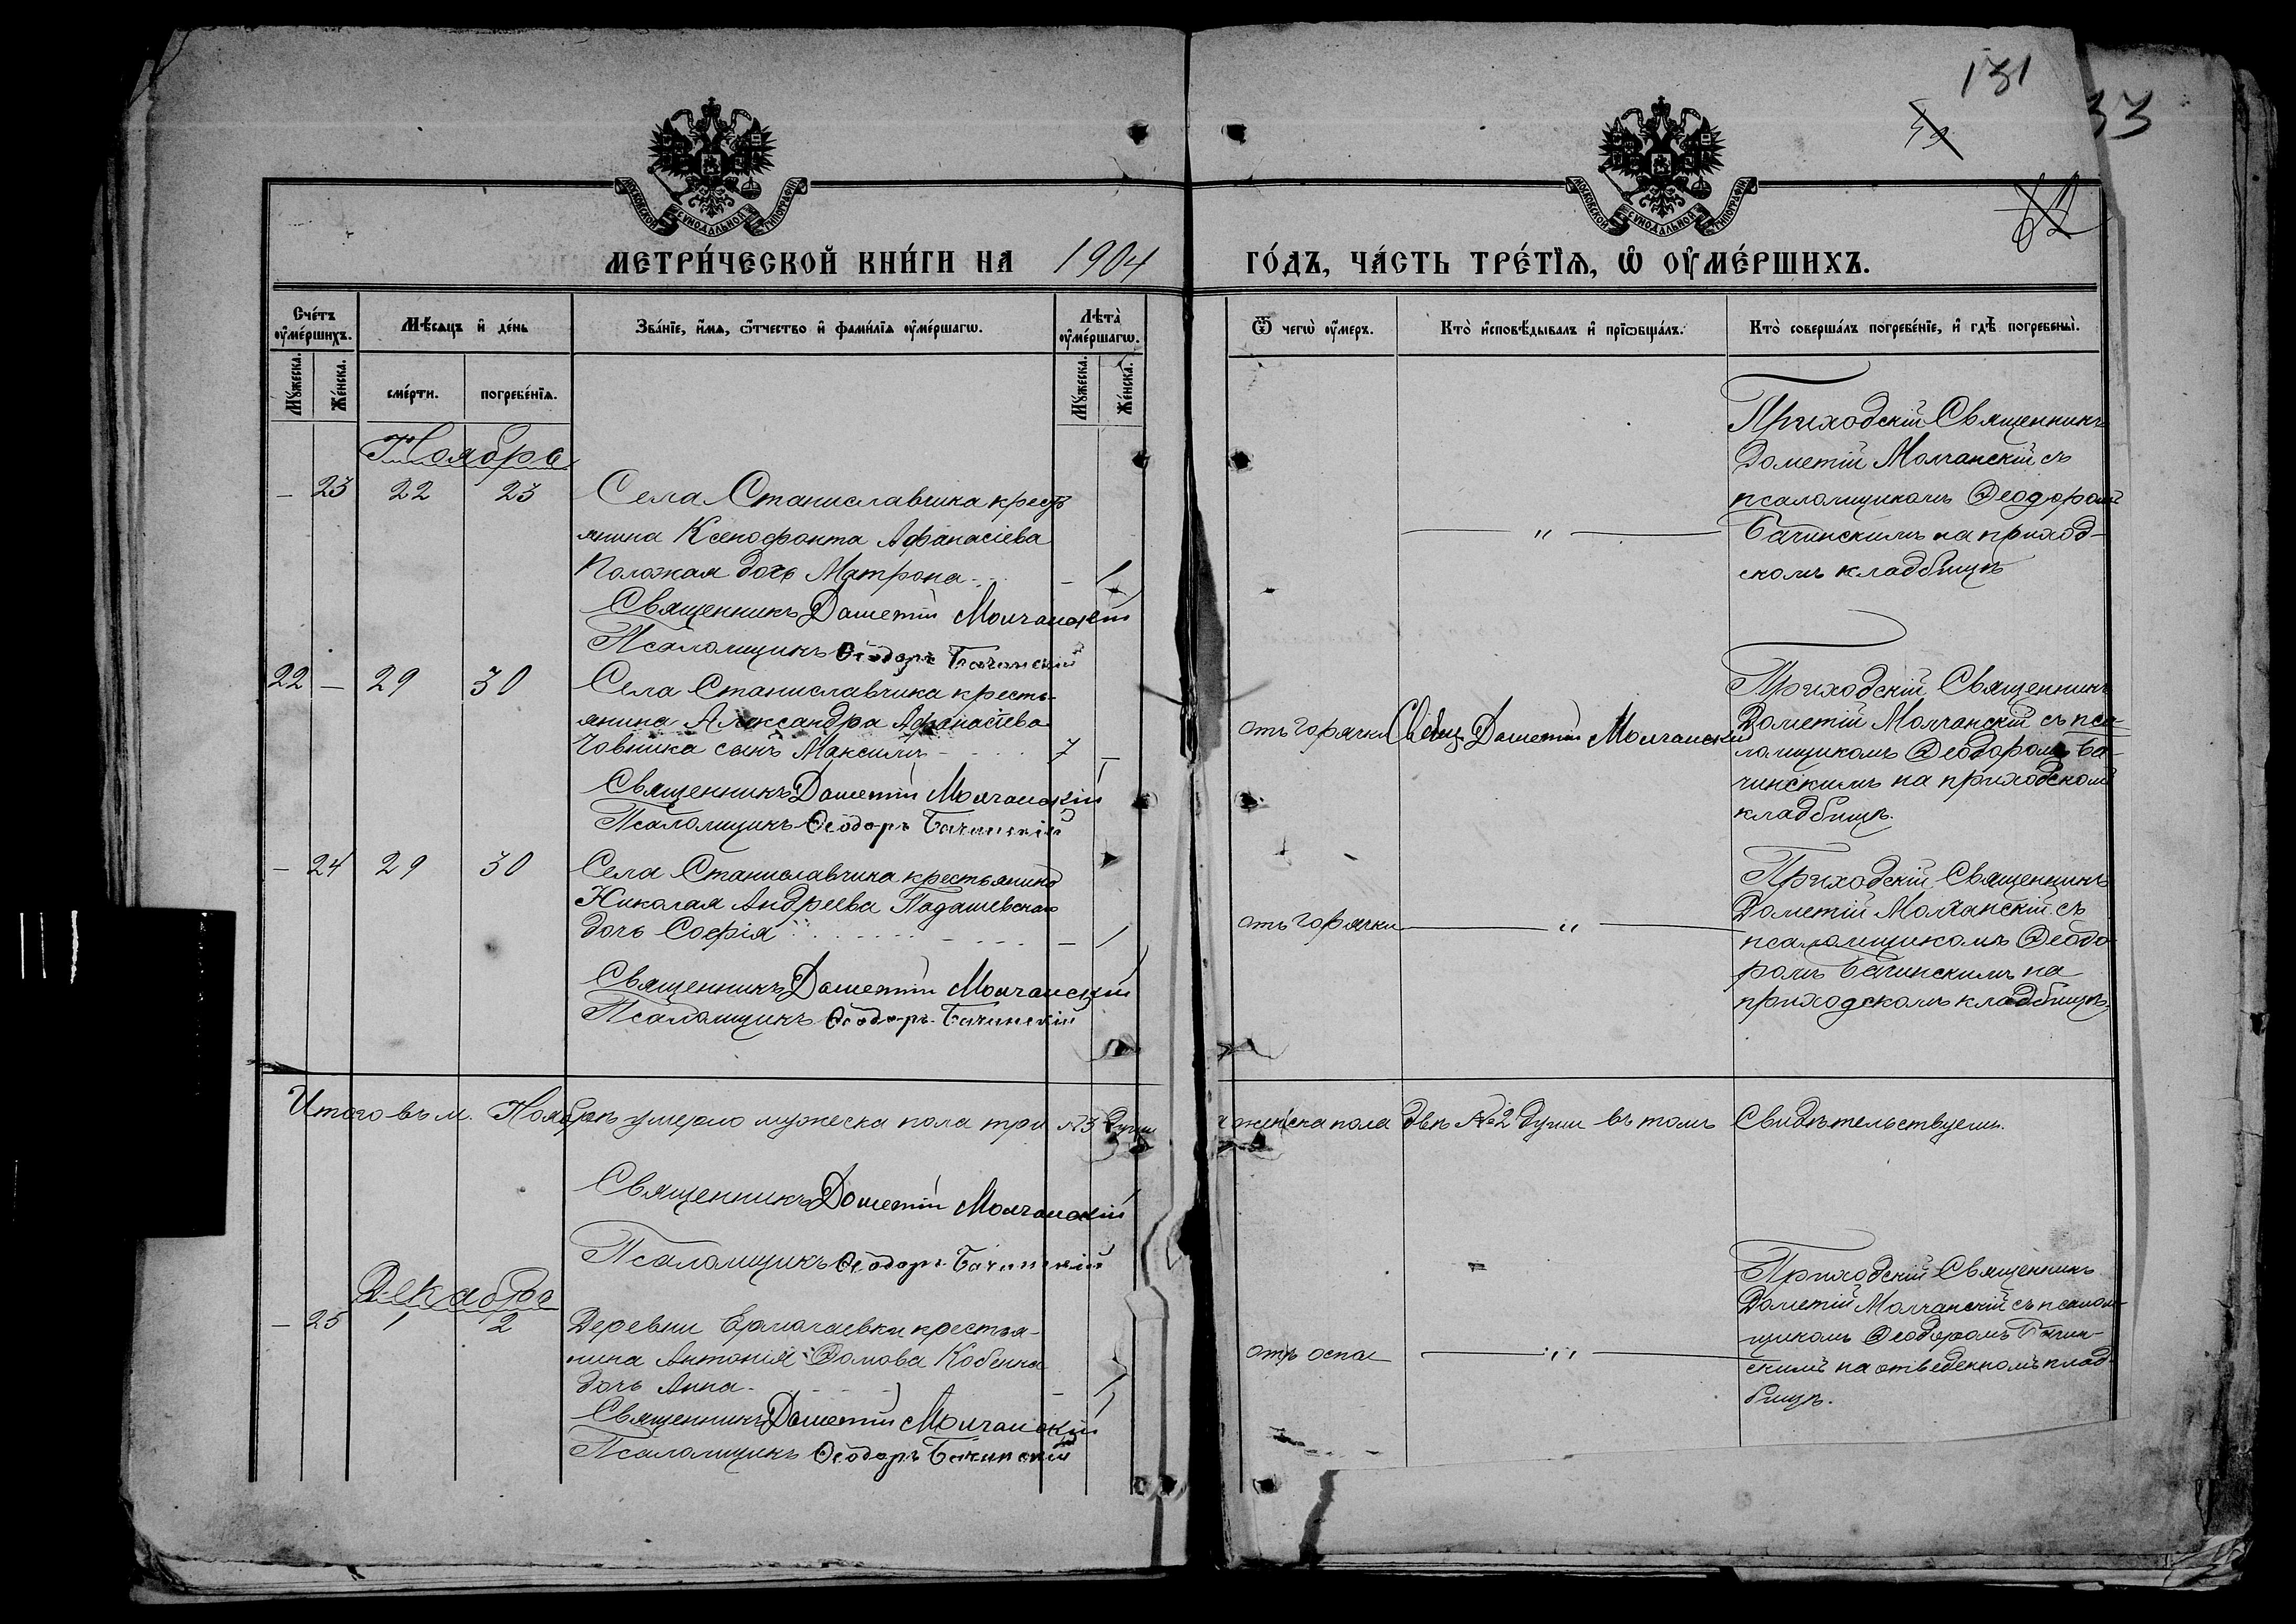 131
33
МОСКОВСКОЙ СУНОДАЛЬНОЙ ТИПОГРАФІИ
МОСКОВСКОЙ СУНОДАЛЬНОЙ ТИПОГРАФІИ
МЕТРИ́ЧЕСКОЙ КНИ́ГИ НА 1904
ГО́ДЪ, ЧА́СТЬ ТРЕ́ТЇѦ, Ѡ҆ ОУ҆МЕ́РШИХЪ.
Сче́тъ оу҆ме́ршихъ.
Мꙋ́жеска.
Же́нска.
Мѣ́сѧцъ и҆ де́нь
сме́рти.
погребе́нїѧ.
Зва́нїе, и҆́мѧ, ѻ҆́тчество и҆ фами́лїѧ оу҆ме́ршагѡ.
Лѣ́та̀ оу҆ме́ршагѡ.
Мꙋ́жеска.
Же́нска.
Ѿ чегѡ̀ оу҆́меръ.
Кто̀ и҆сповѣ́дывалъ и҆ прїѡбща́лъ.
Кто̀ соверша́лъ погребе́нїе, и҆ гдѣ̀ погребены̀.
Ноябрь
– 23 22 23
Села Станиславчика кресть
янина Ксенофонта Афанасіева
дочь Матрона – 1
Священникъ Дометій Молчанскій
Псаломщикъ Ѳеодоръ Бачинскій
– " –
Приходскій Священникъ
Дометій Молчанскій съ
псаломщикомъ Ѳеодоромъ
Бачинскимъ на приход-
скомъ кладбищѣ
22 – 29 30
Села Станиславчика кресть-
янина Александра Афанасіева
сынъ Максимъ 7 –
Священникъ Дометій Молчанскій
Псаломщикъ Ѳеодоръ Бачинскій
отъ горячки
Свящ. Дометій Молчанскій
Приходскій Священникъ
Дометій Молчанскій съ пса-
ломщикомъ Ѳеодоромъ Ба-
чинскимъ на приходскомъ
кладбищѣ.
– 24 29 30
Села Станиславчика крестьянина
Николая Андреева
дочь Софія – 1
Священникъ Дометій Молчанскій
Псаломщикъ Ѳеодоръ Бачинскій
отъ горячки
– " –
Приходскій Священникъ
Дометій Молчанскій съ
псаломщикомъ Ѳеодо-
ромъ Бачинскимъ на
приходскомъ кладбищѣ
Итого въ м. Ноябрѣ умерло мужеска пола три №3 души
а женска пола двѣ №2 души въ томъ Свидѣтельствуемъ.
Священникъ Дометій Молчанскій
Псаломщикъ Ѳеодоръ Бачинскій
Декабрь
– 25 1 2
Деревни Ермолаевки крестья-
нина Антонія Ѳомова
дочь Анна – 1
Священникъ Дометій Молчанскій
Псаломщикъ Ѳеодоръ Бачинскій
отъ оспы
– " –
Приходскій Священникъ
Дометій Молчанскій съ псалом-
щикомъ Ѳеодоромъ Бачин-
скимъ на отведенномъ клад-
бищѣ.